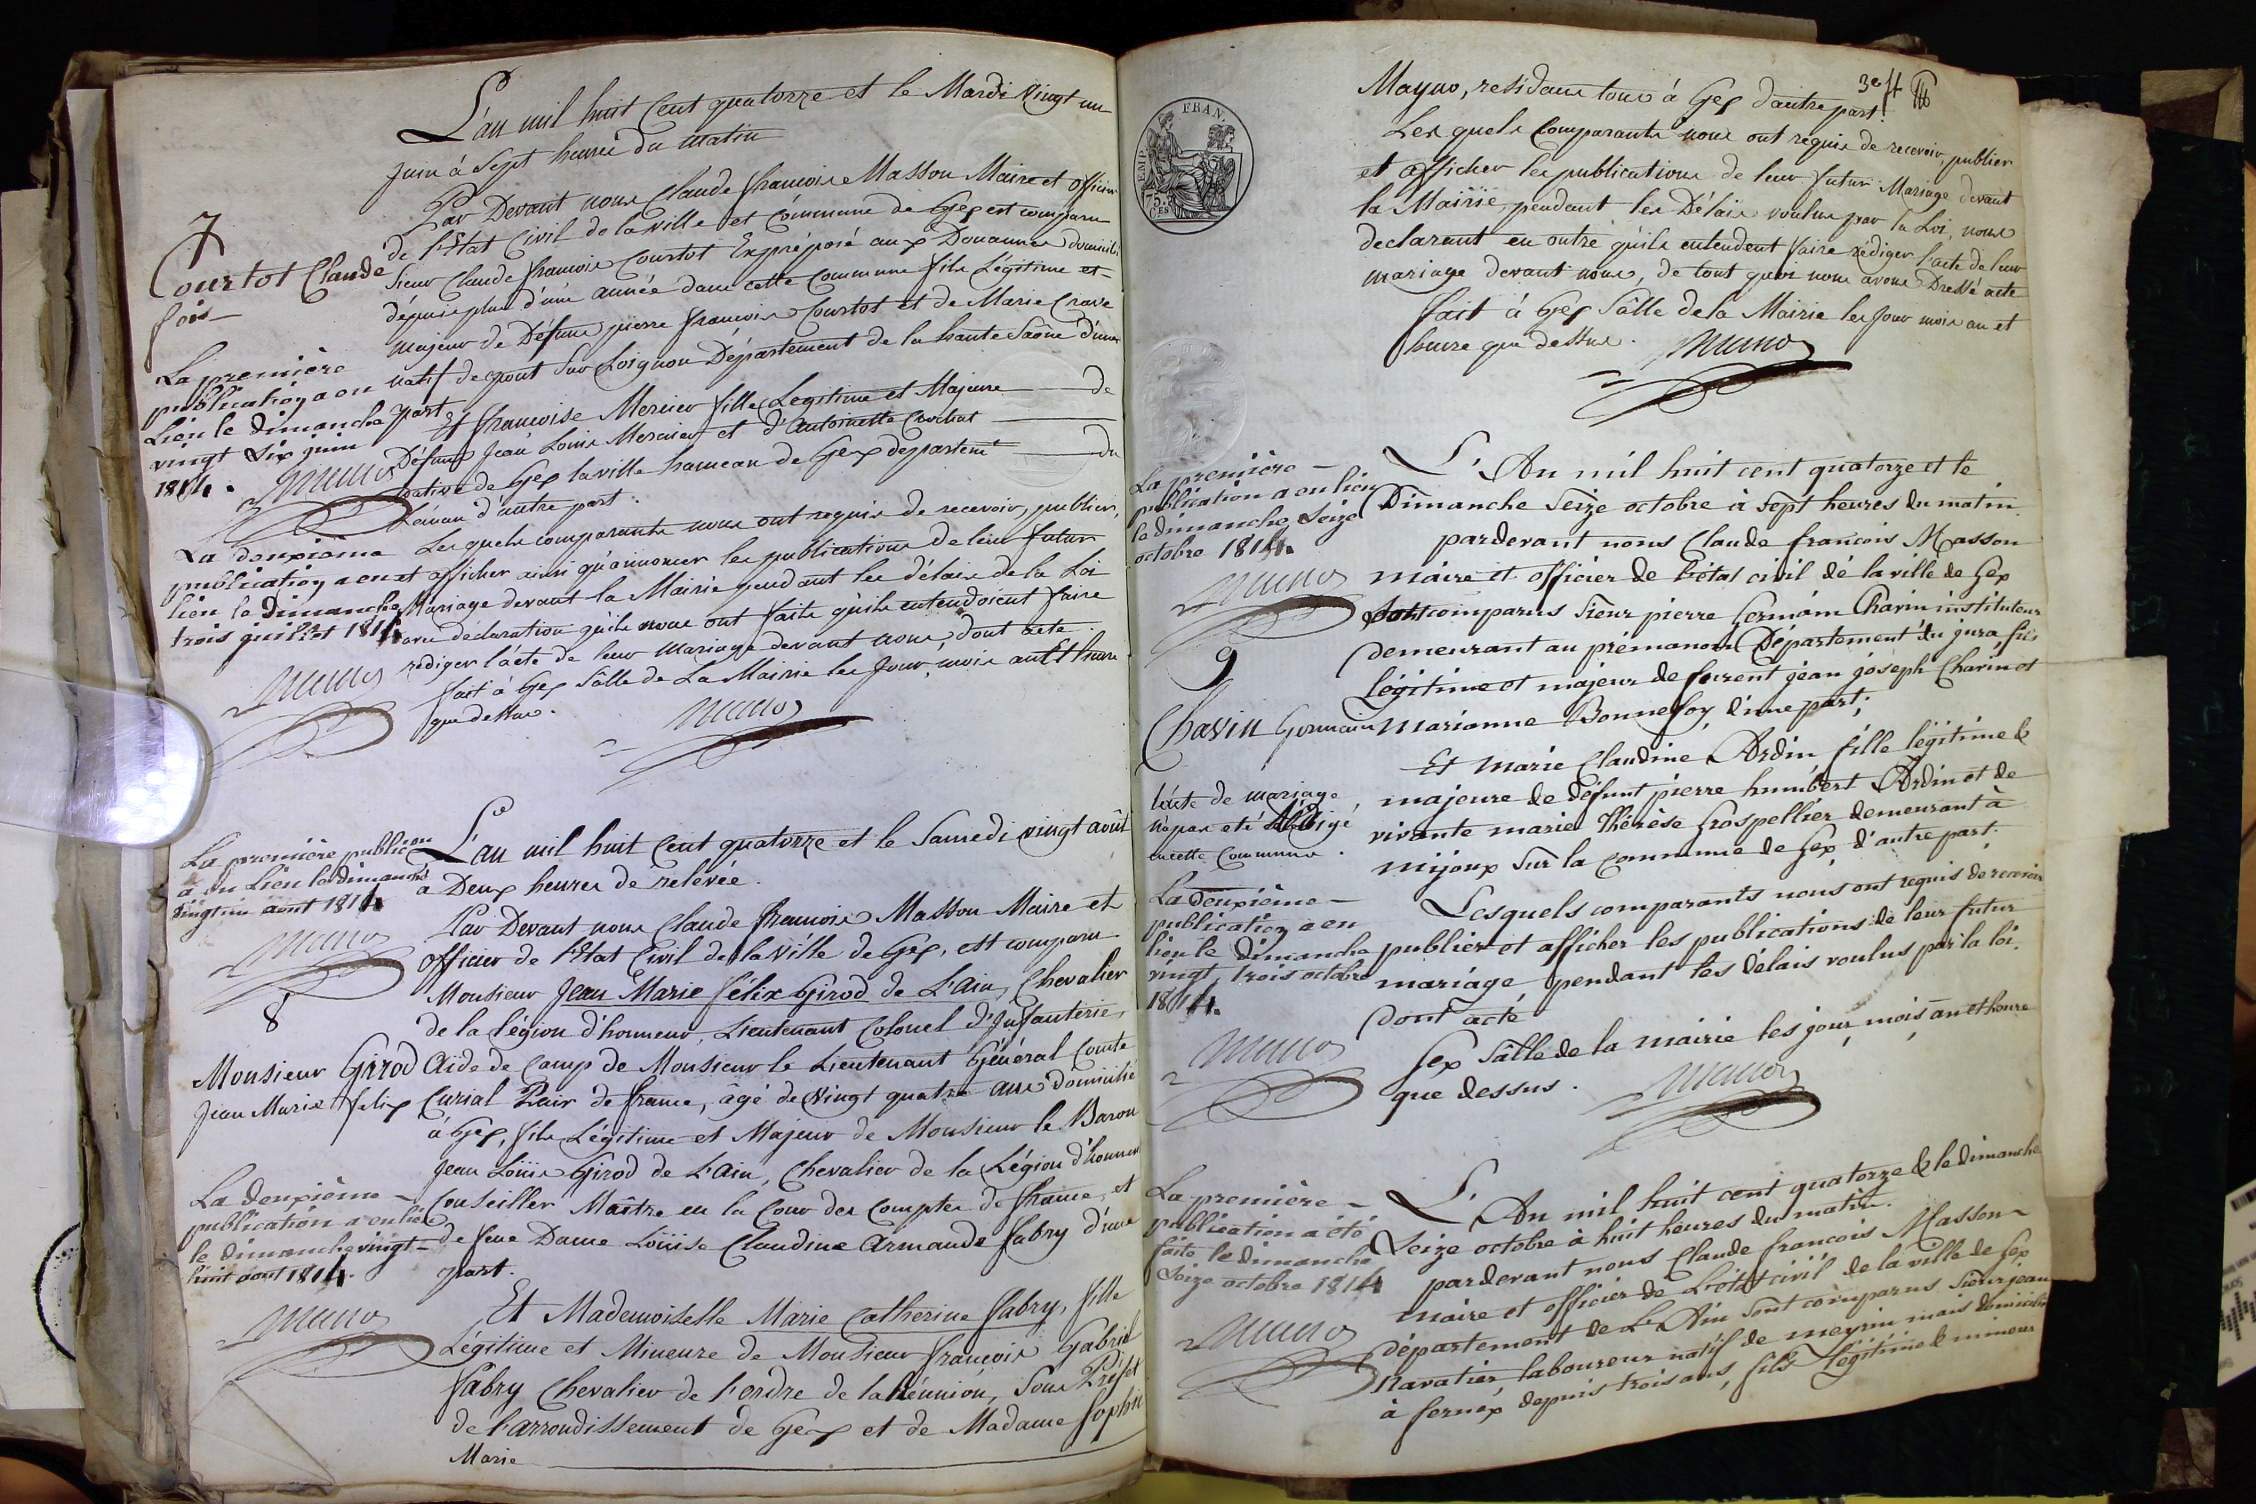 L'an mil huit Cent quatorze et le Mardi Vingt un
juin à Sept heures du matin
Par Devant nous Claude françois Masson Maire et officier
de l'Etat Civil de la ville et Commune de Gex est comparu
Sieur Claude françois Courtot Expréposé aux Douannes domicilié
dépuis plus d'une année dans cette Commune fils Légitime et
majeur de Défunt pierre françois Courtot et de Marie Crave
natif de pont Sur Loignon Département de la haute Saône d'une
part
Et françoise Mercier fille Legitime et Majeure de
Défunt Jean Louis Mercier et d'Antoinette Crochat
native de Gex la ville hameau de Gex departemt du
Léman d'autre part.
Lesquels comparants nous ont requis de recevoir, publier,
et afficher ainsi qu'annoncer les publications de leur futur
Mariage devant la Mairie pendant les délais de la Loi
avec déclaration qu'ils nous ont faite qu'ils entendoient faire
rédiger l'acte de leur Mariage devant nous, dont acte.
fait à Gex Sâlle de La Mairie les Jour, mois an et heure
que dessus.
7
Courtot Claude
fois
La première
publication a eu
Lieu le dimanche
vingt Six juin
1814.
La deuxième
publication a eu
lieu le dimanche
trois juillet 1814
L'an mil huit Cent quatorze et le Samedi vingt août
à Deux heures de relévée.
Par Devant nous Claude françois Masson Maire et
officier de l'Etat Civil de la Ville de Gex, est comparu
Monsieur Jean Marie félix Girod de L'Ain, Chevalier
de la légion d'honneur, Lieutenant Colonel d'Infanterie,
Aide de Camp de Monsieur le Lieutenant Général Comte
Curial Pair de france, âgé de Vingt quatre ans Domicilié
à Gex, fils Légitime et Majeur de Monsieur le Baron
Jean Loüis Girod de L'Ain, Chevalier de la Légion d'honneur
Conseiller Maître en la Cour des Comptes de france, et
de feue Dame Loüise Claudine Armande fabry d'une
part.
Et Mademoiselle Marie Catherine fabry, fille
Légitime et Mineure de Monsieur françois Gabriel
fabry Chevalier de l'ordre de la Réunion, Sous Préfet
de l'arrondissement de Gex et de Madame Sophie
Marie
La première public.on
a eu Lieu le dimanche
vingt un aout 1814
8
Monsieur Girod
Jean Marie felix
La deuxième
publication a eu lieu
le dimanche vingt
huit aout 1814.
FRAN.
EMP.
75.
CES
3e f
Mayno, residans tous à Gex d'autre part.
Les quels Comparants nous ont requis de recevoir, publier
et afficher les publications de leur futur Mariage devant
la Mairie, pendant les Délais voulus par la Loi, nous
declarant en outre qu'ils entendent faire rédiger l'acte de leur
mariage devant nous, de tout quoi nous avons Dressé acte
fait à Gex Sâlle de la Mairie les Jour mois an et
heure que dessus.
L'An mil huit cent quatorze et le
Dimanche Seize octobre à sept heures du matin.
pardevant nous Claude françois Masson
maire et officier de l'état civil de la ville de Gex
Sont comparus Sieur pierre Germain Chavin instituteur
demeurant au prémanon Département du jura fils
légitime et majeur de jean joseph Chavin et
marianne Bonnefoy d'une part;
Et Marie Claudine Ardin fille légitime &
majeure de défunt pierre humbert Ardin et de
vivante marie Thérèse Grospellier demeurant à
mijoux sur la commune de Gex d'autre part.
Lesquels comparants nous ont requis de recevoir
publier et afficher les publications de leur futur
mariage pendant les délais voulus par la loi.
Dont acte
Gex Sâlle de la mairie les jour, mois, an et heure
que dessus.
La première
publication a eu lieu
le dimanche Seize
octobre 1814.
9
Chavin Germain
l'acte de mariage
n'a pas eté rédigé
en cette Commune.
La deuxième
publication a eu
lieu le dimanche
vingt trois octobre
1814.
L'An mil huit cent quatorze & le dimanche
Seize octobre à huit heures du matin.
pardevant nous Claude francois Masson
maire et officier de L'état civil de la ville de Gex
département de L'Ain sont comparus Sieur jean
Navatier, laboureur natif de meyrin mais domicilié
à fernex depuis trois ans, fils légitime & mineur
La première
publication a été
faite le dimanche
Seize octobre 1814